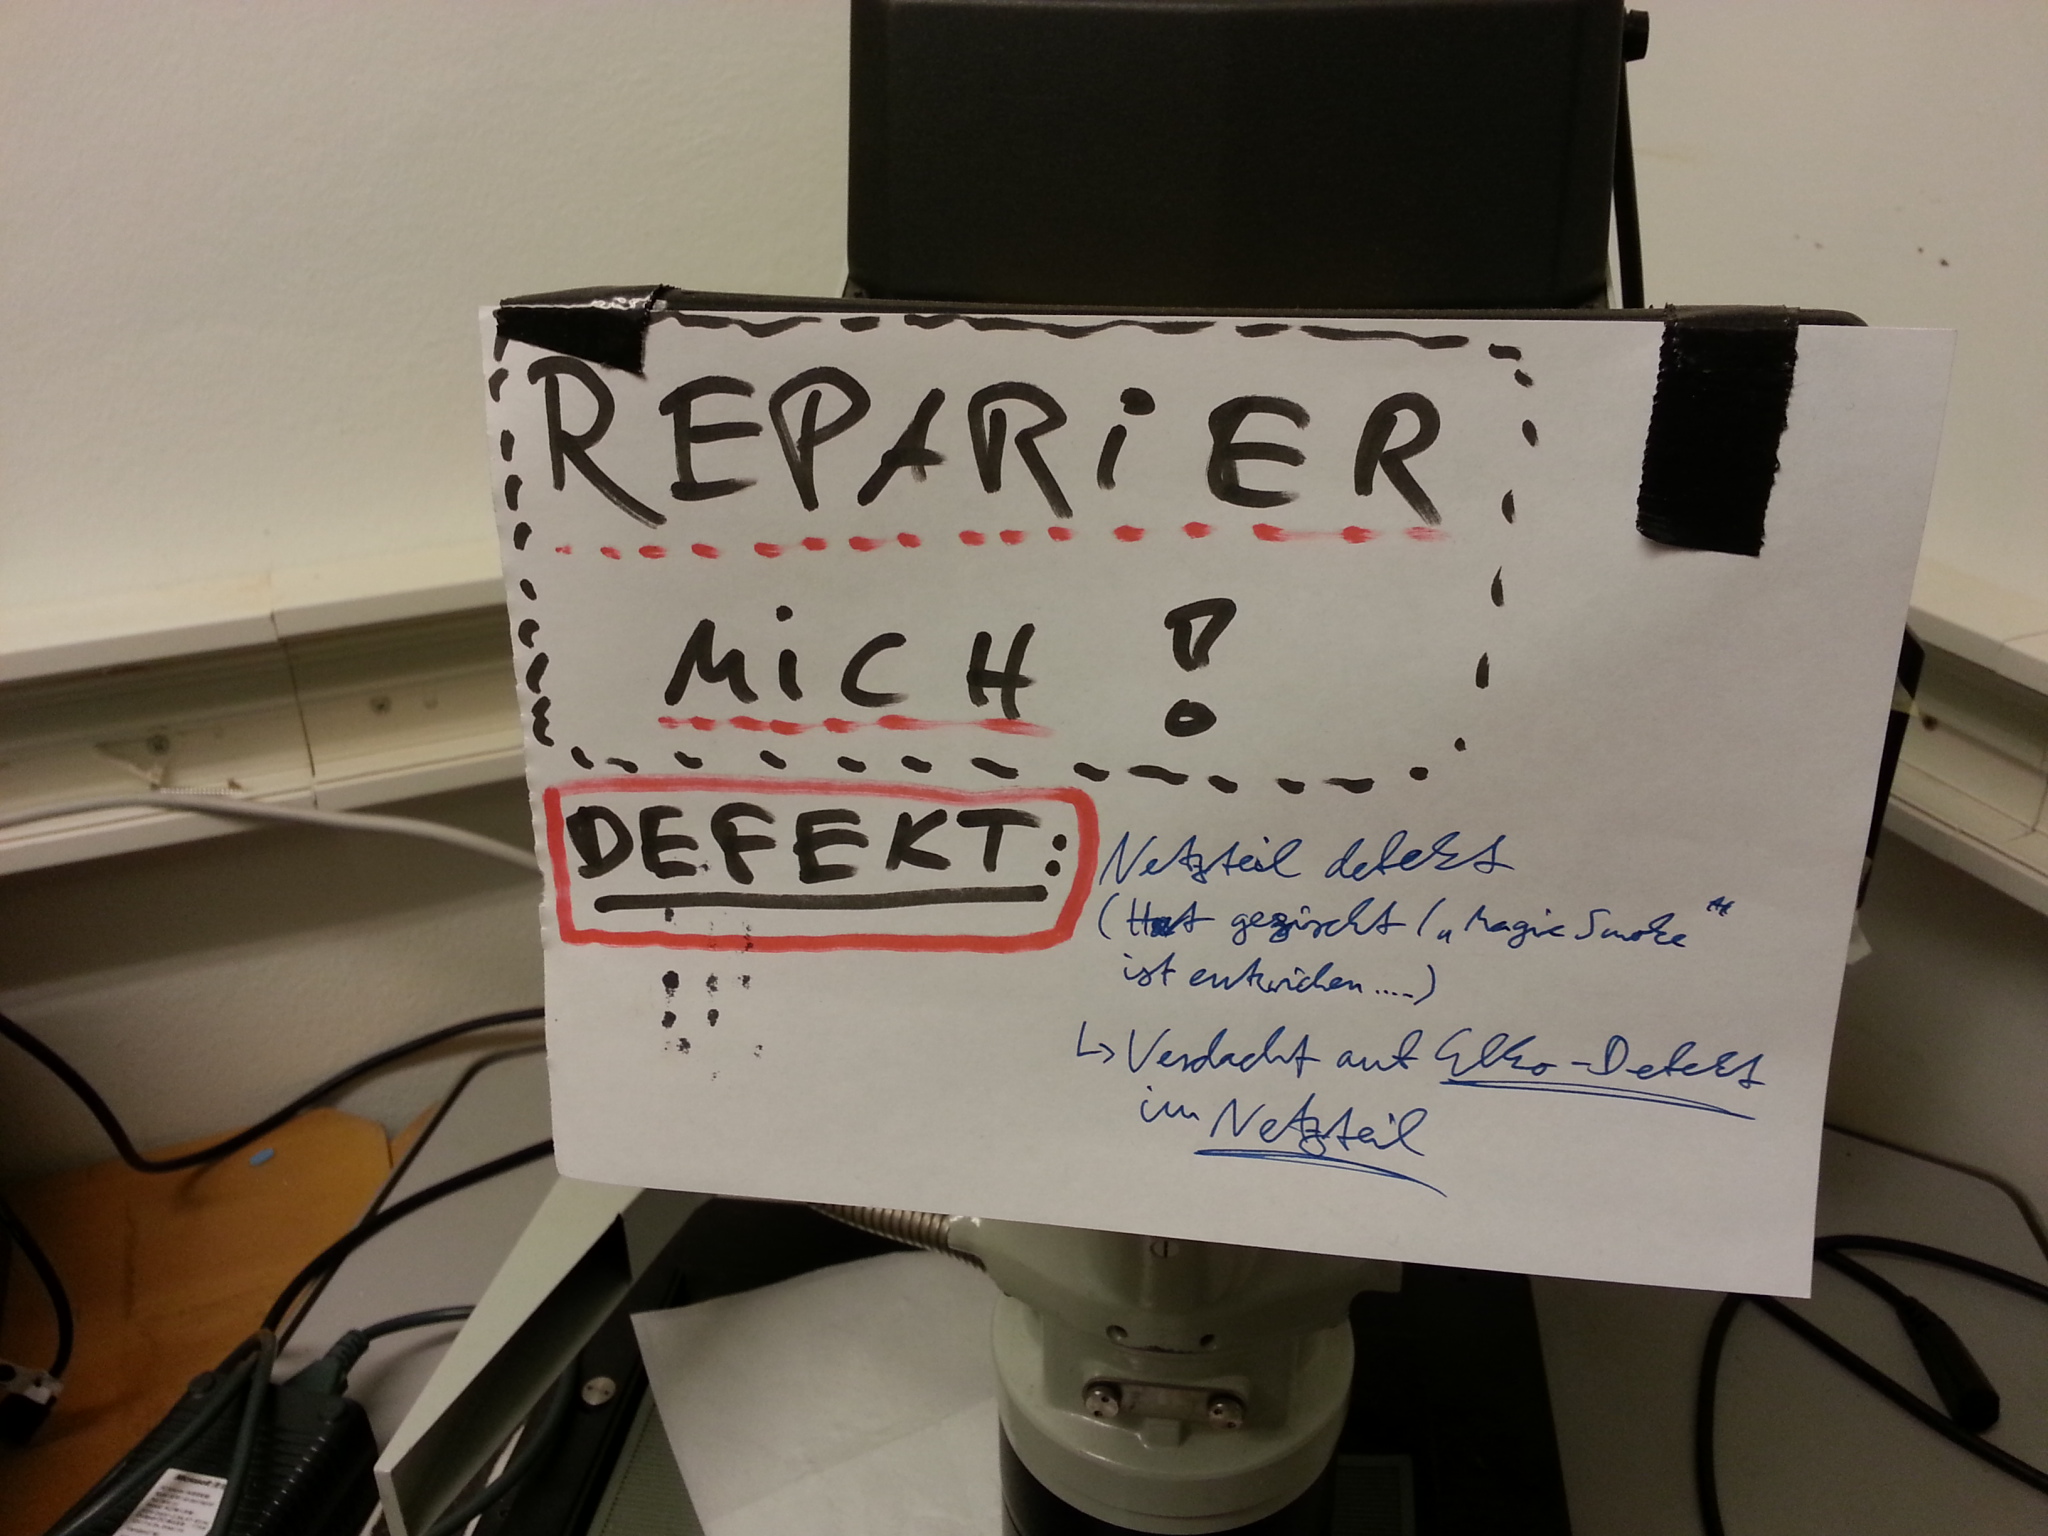 REPARiER
MiCH !
DEFEKT:
Netzteil defekt
(Hat gezischt / „Magic Smoke"
ist entwichen ....)
↳ Verdacht auf Elko-Defekt
im Netzteil
Microsoft